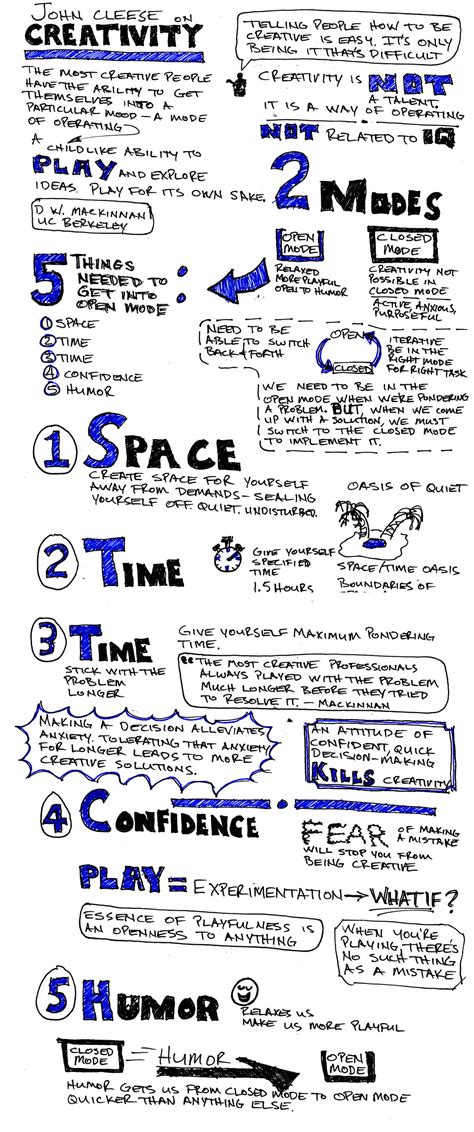 JOHN CLEESE ON
CREATIVITY
THE MOST CREATIVE PEOPLE
HAVE THE ABILITY TO GET
THEMSELVES INTO A
PARTICULAR MOOD - A MODE
OF OPERATING
A CHILDLIKE ABILITY TO
PLAY AND EXPLORE
IDEAS. PLAY FOR ITS OWN SAKE.
D.W. MACKINNAN
UC BERKELEY
TELLING PEOPLE HOW TO BE
CREATIVE IS EASY. IT'S ONLY
BEING IT THAT'S DIFFICULT
CREATIVITY IS NOT
A TALENT.
IT IS A WAY OF OPERATING
NOT RELATED TO IQ
2 MODES
OPEN
MODE
RELAXED
MORE PLAYFUL
OPEN TO HUMOR
CLOSED
MODE
CREATIVITY NOT
POSSIBLE IN
CLOSED MODE
ACTIVE, ANXIOUS,
PURPOSEFUL
5 THINGS
NEEDED TO
GET INTO
OPEN MODE:
1 SPACE
2 TIME
3 TIME
4 CONFIDENCE
5 HUMOR
NEED TO BE
ABLE TO SWITCH
BACK & FORTH
OPEN
CLOSED
ITERATIVE
BE IN THE
RIGHT MODE
FOR RIGHT TASK
WE NEED TO BE IN THE
OPEN MODE WHEN WE'RE PONDERING
A PROBLEM. BUT, WHEN WE COME
UP WITH A SOLUTION, WE MUST
SWITCH TO THE CLOSED MODE
TO IMPLEMENT IT.
1 SPACE
CREATE SPACE FOR YOURSELF
AWAY FROM DEMANDS - SEALING
YOURSELF OFF. QUIET. UNDISTURBED.
OASIS OF QUIET
2 TIME
GIVE YOURSELF
SPECIFIED
TIME
1.5 HOURS
SPACE/TIME OASIS
BOUNDARIES OF
3 TIME
STICK WITH THE
PROBLEM
LONGER
GIVE YOURSELF MAXIMUM PONDERING
TIME.
"THE MOST CREATIVE PROFESSIONALS
ALWAYS PLAYED WITH THE PROBLEM
MUCH LONGER BEFORE THEY TRIED
TO RESOLVE IT. - MACKINNAN
MAKING A DECISION ALLEVIATES
ANXIETY. TOLERATING THAT ANXIETY
FOR LONGER LEADS TO MORE
CREATIVE SOLUTIONS.
AN ATTITUDE OF
CONFIDENT, QUICK
DECISION-MAKING
KILLS CREATIVITY
4 CONFIDENCE
FEAR OF MAKING
A MISTAKE
WILL STOP YOU FROM
BEING CREATIVE
PLAY = EXPERIMENTATION → WHAT IF?
ESSENCE OF PLAYFULNESS IS
AN OPENNESS TO ANYTHING
WHEN YOU'RE
PLAYING, THERE'S
NO SUCH THING
AS A MISTAKE
5 HUMOR
RELAXES US
MAKE US MORE PLAYFUL
CLOSED
MODE
= HUMOR
OPEN
MODE
HUMOR GETS US FROM CLOSED MODE TO OPEN MODE
QUICKER THAN ANYTHING ELSE.